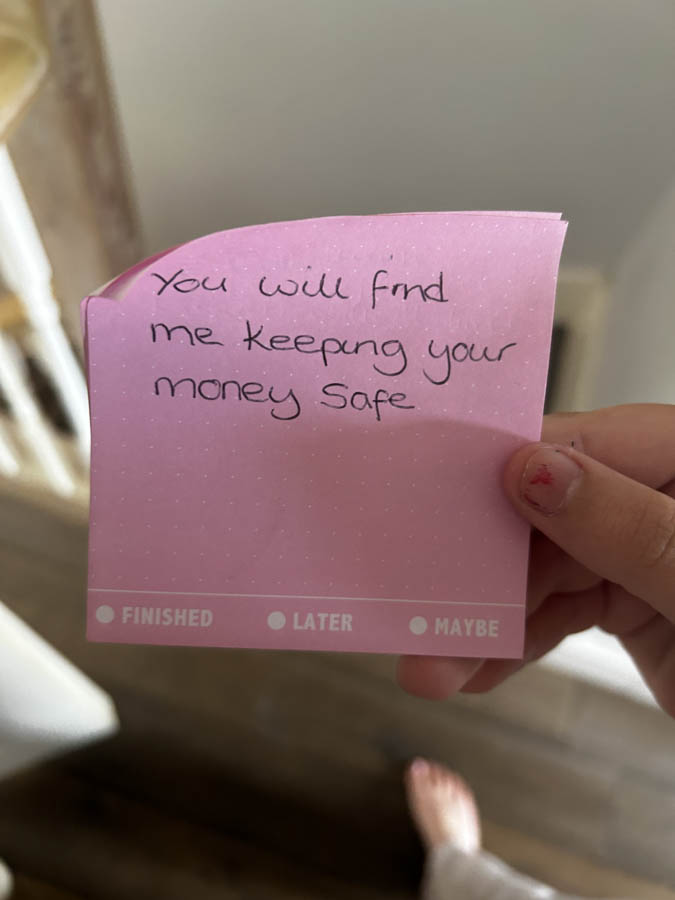 You will find
me keeping your
money safe
FINISHED LATER MAYBE